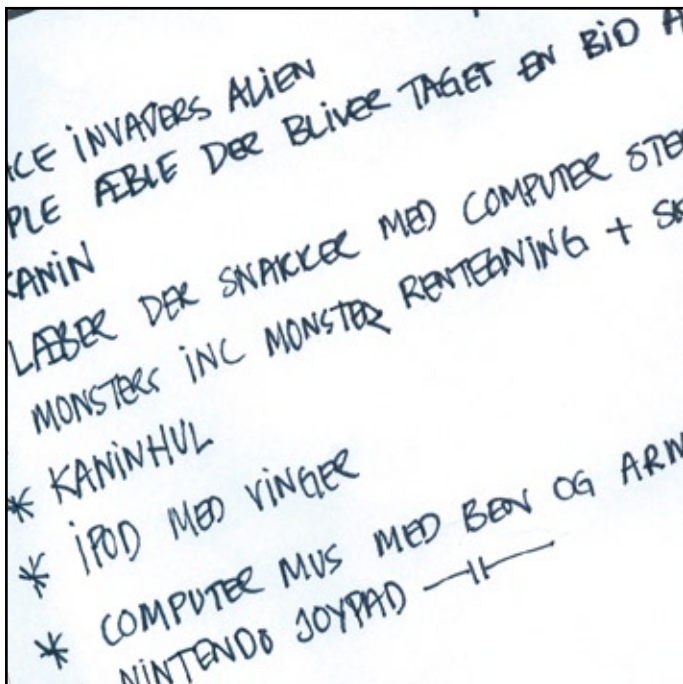 ACE INVADERS ALIEN
PLE ÆBLE DER BLIVER TAGET EN BID A
KANIN
LÆBER DER SNAKKER MED COMPUTER STE
MONSTERS INC MONSTER RENTEGNING + SK
* KANINHUL
* IPOD MED VINGER
* COMPUTER MUS MED BEN OG ARM
NINTENDO JOYPAD